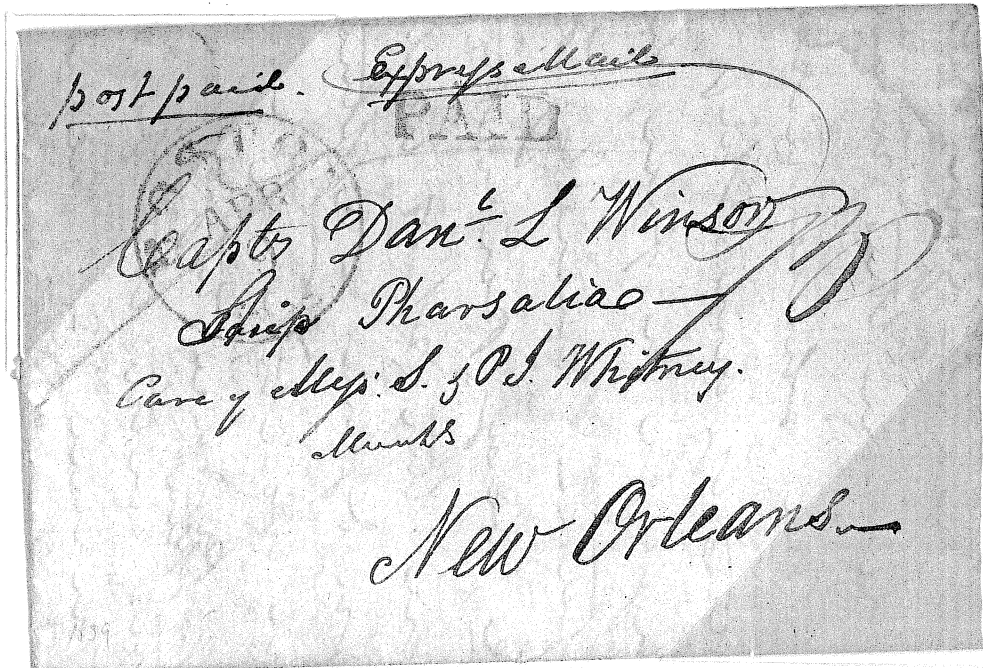 post paid. Express Mail
PAID
APR
Capt Danˡ. L Winsor
Ship Pharsalia —
Care of Mess. S. & P J. Whitney.
New Orleans —
1839